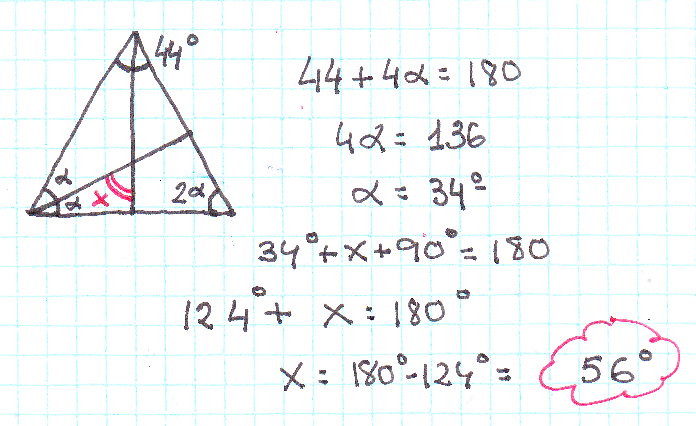 44°
α
α
x
2α
44 + 4α = 180
4α = 136
α = 34°
34° + x + 90° = 180
124° + x = 180°
x = 180° - 124° = 56°